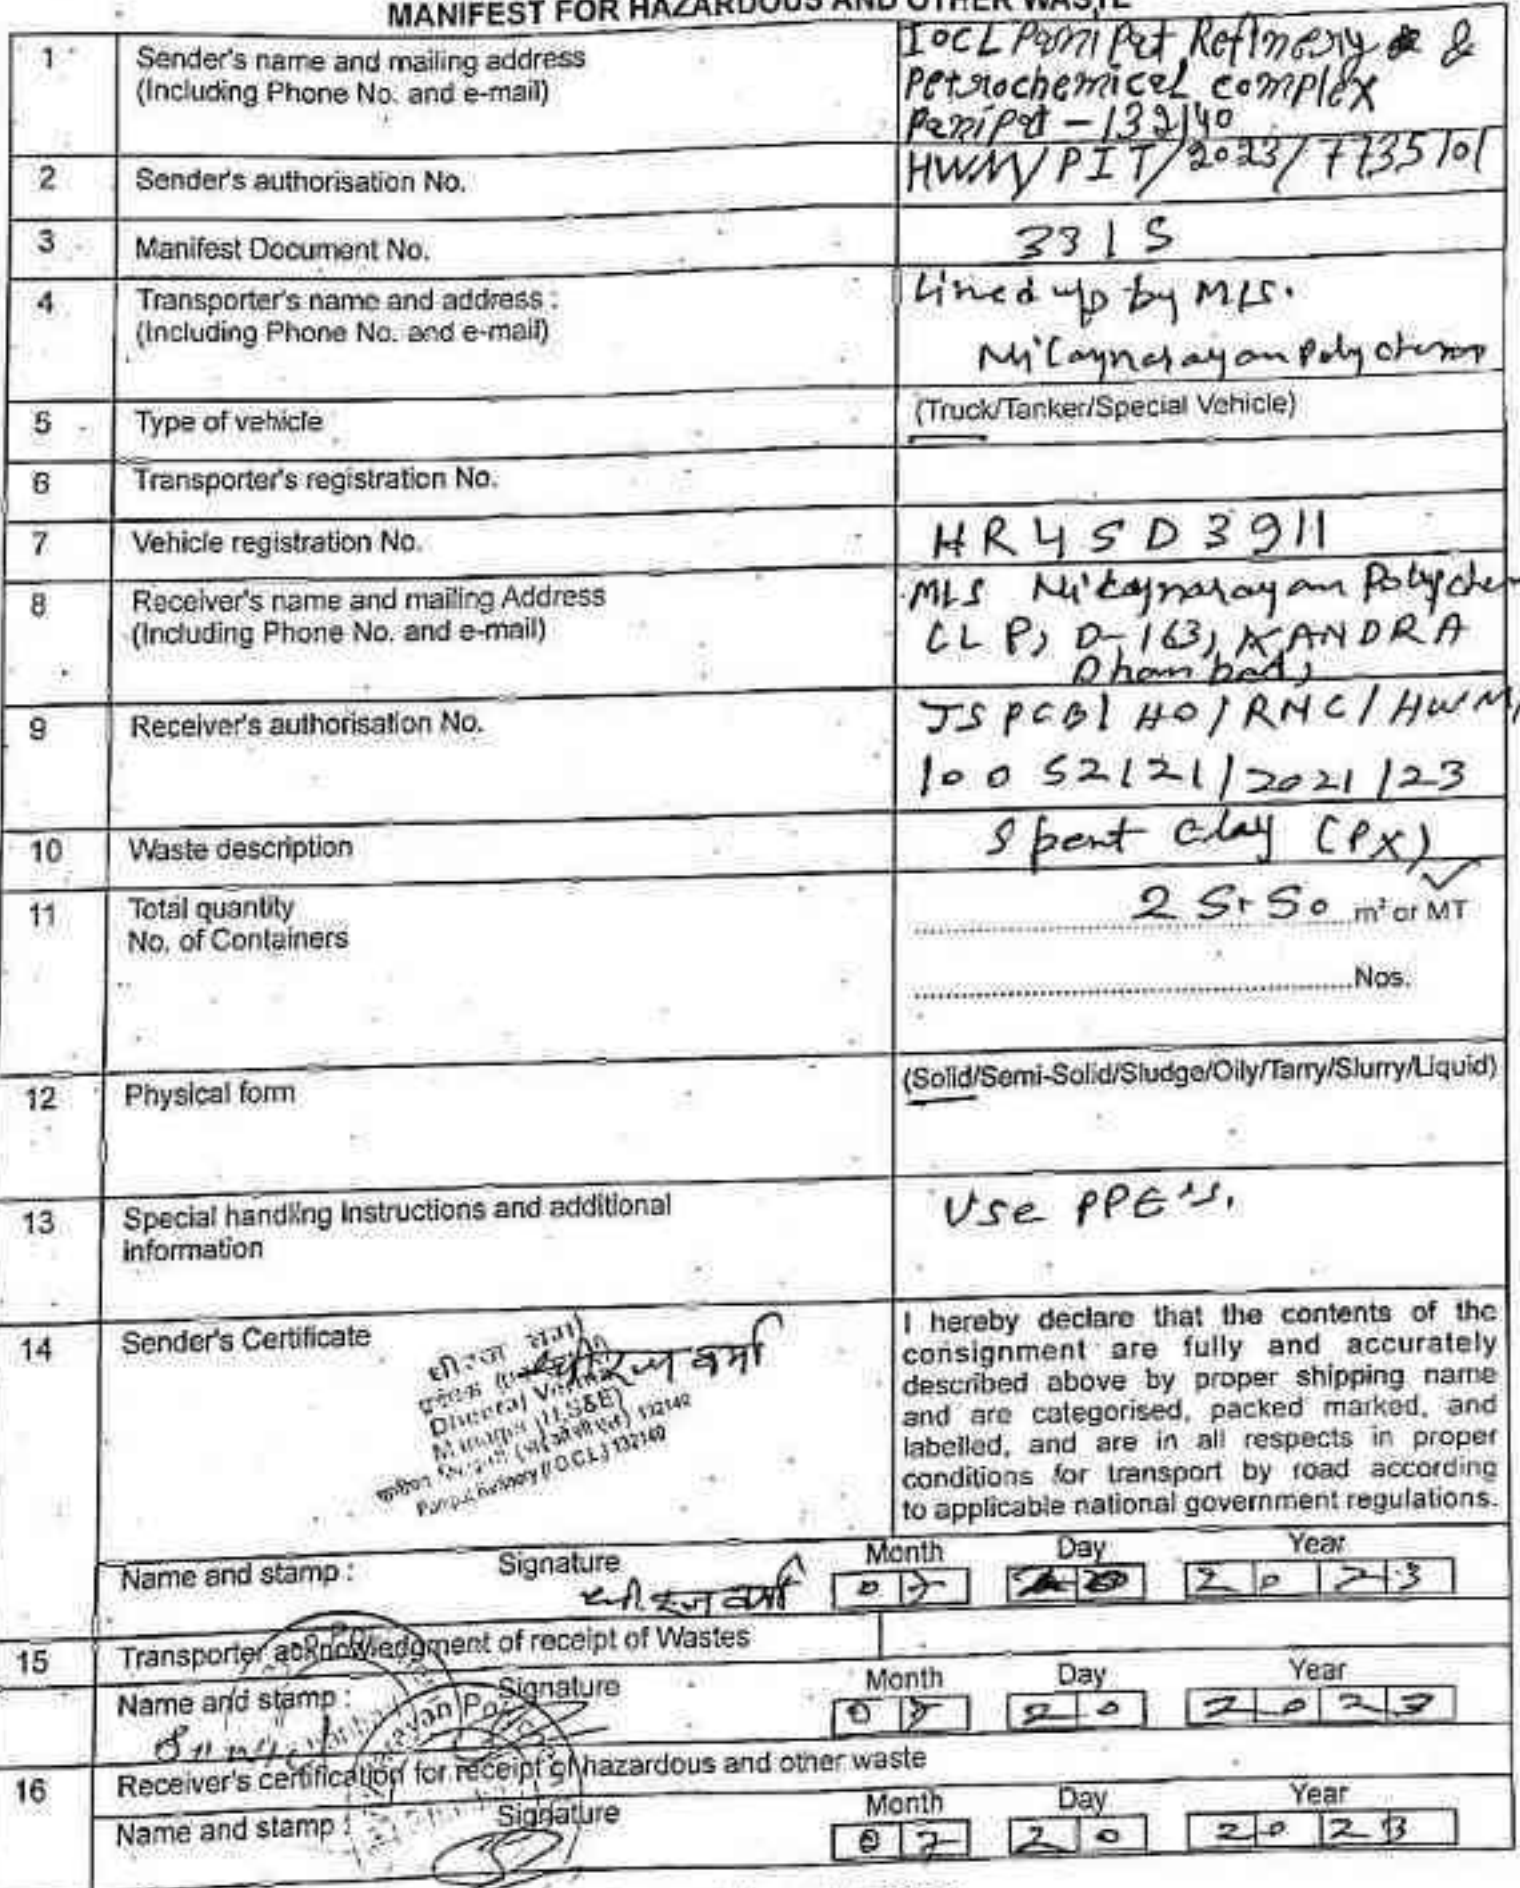 MANIFEST FOR HAZARDOUS AND OTHER WASTE
1 Sender's name and mailing address
(Including Phone No. and e-mail)
IOCL Panipat Refinery &
Petrochemical complex
Panipat - 132140
2 Sender's authorisation No.
HWM/PIT/2023/7735101
3 Manifest Document No.
3315
4 Transporter's name and address :
(Including Phone No. and e-mail)
Lined up by M/s.
Polychem
5 Type of vehicle
(Truck/Tanker/Special Vehicle)
6 Transporter's registration No.
7 Vehicle registration No.
HR45D3911
8 Receiver's name and mailing Address
(Including Phone No. and e-mail)
M/s Polychem
CLP, D-163, KANDRA
Dhanbad,
9 Receiver's authorisation No.
JSPCB/HO/RNC/HWM/
10052121/2021/23
10 Waste description
Spent clay (PX)
11 Total quantity
No. of Containers
25.50 m³ or MT
Nos.
12 Physical form
(Solid/Semi-Solid/Sludge/Oily/Tarry/Slurry/Liquid)
13 Special handling Instructions and additional
information
Use PPE's.
14 Sender's Certificate
धीरज वर्मा
Dheeraj Verma
Panipat Refinery (I.O.C.L.) 132140
I hereby declare that the contents of the
consignment are fully and accurately
described above by proper shipping name
and are categorised, packed marked, and
labelled, and are in all respects in proper
conditions for transport by road according
to applicable national government regulations.
Name and stamp : Signature Month Day Year
धीरज वर्मा 07 20 2023
15 Transporter acknowledgment of receipt of Wastes
Name and stamp : Signature Month Day Year
07 20 2023
16 Receiver's certification for receipt of hazardous and other waste
Name and stamp : Signature Month Day Year
07 20 2023